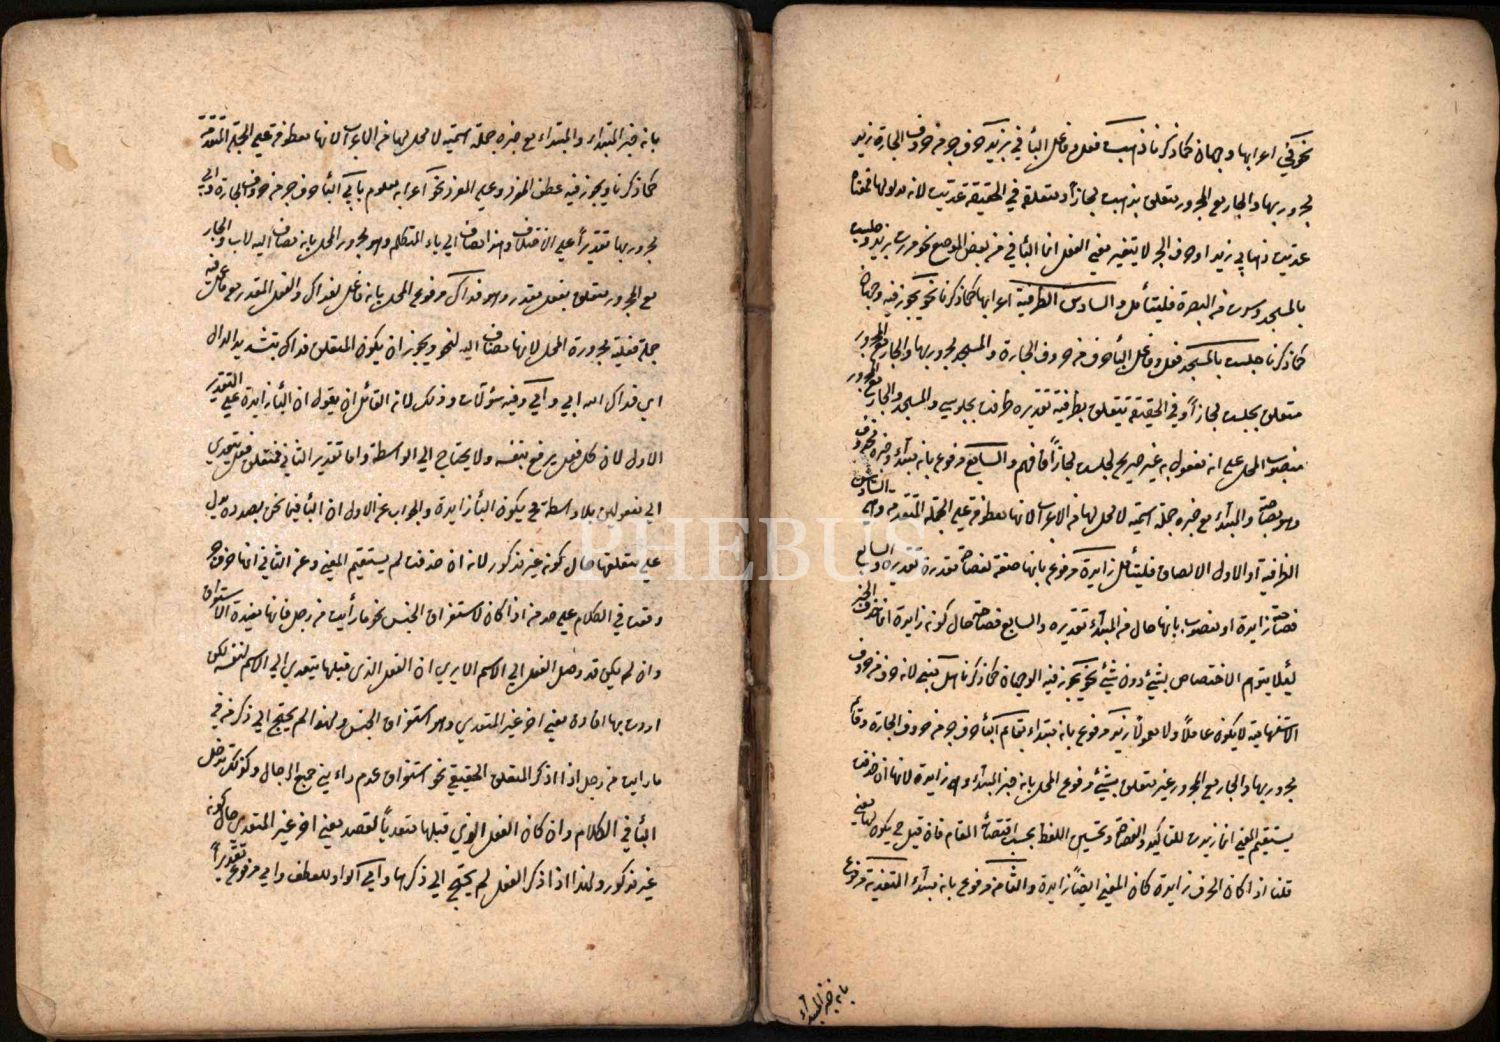 نحو كفي اعرابها وجهان كما ذكرنا ذهبت فعل وفاعل البأ في بزيد حرف جر من حروف الجارة زيد
مجرور بها والجار مع المجرور متعلق بذهبت مجازاً ومتعلقة في الحقيقة عديت لانه مدلولها فمعناه
عديت ذهابي زيدا وحرف الجر لا يتغير معني الفعل انما البأ في في بعض المواضع نحو مررت بزيد وجلست
بالمسجد وسرت من البصرة فليتأمل والسادس الظرفية اعرابها كما ذكرنا نحو يجوز فيه وجهان
كما ذكرنا جلست بالمسجد فعل وفاعل البأ حرف من حروف الجارة والمسجد مجرور بها والجار مع المجرور
متعلق بجلست مجازاً وفي الحقيقة يتعلق بظرفية تقديره ظرفت بجلوسي المسجد والجار مع المجرور
منصوب المحل علي انه مفعول به غير صريح لجلست مجازاً فافهم والسابع مرفوع بانه مبتدأ وخبره محذوف
وهو والمبتدأ مع خبره جملة اسمية لا محل لها من الاعراب لانها معطوفة علي الجملة المتقدمة وهي السادس
الظرفية او الاول الالصاق فليتأمل زايدة مرفوع بانها صفة مقدرة تقديره والسابع
زايدة او منصوب بانها حال من المبتدأ تقديره والسابع حال كونه زايدة انما حذف الخبر
لئلا يتوهم الاختصاص بشئ دون شئ نحو يجوز فيه الوجهان كما ذكرنا هل يبني لانه حرف من حروف
الاستفهامية لا يكون عاملاً ولا معمولاً زيد مرفوع بانه مبتدأ بقائم البأ حرف جر من حروف الجارة وقائم
مجرور بها والجار مع المجرور غير متعلق بشئ مرفوع المحل بانه خبر المبتدأ وهو زايدة لانها ان حذفت
يستقيم المعني انما زيدت للتأكيد والفصاحة وتحسين اللفظ بحسب اقتضأ المقام فان قيل يكون لها معني
قلنا اذا كان الحرف زايدة كان المعني ايضاً زايدة والثامن مرفوع بانه مبتدأ المتعدية مرفوع
بانه خبر المبتدأ
بانه خبر المبتداء والمبتداء مع خبره جملة اسمية لا محل لها من الاعراب لانها معطوفة علي الجملة المتقدمة
كما ذكرنا ويجوز فيه عطف المفرد علي المفرد نحو اعرابه معلوم بابي البأ حرف جر من حروف الجارة وابي
مجرور بها تقديراً علي الاختلاف وهذا مضاف الي ياء المتكلم وهو مجرور المحل بانه مضاف اليه لاب والجار
مع المجرور متعلق بفعل مقدر وهو فداك مرفوع المحل بانه فاعل لفداك والفعل المقدر مع فاعله فيه
جملة فعلية مجرورة المحل لانها مضاف اليه لنحو ويجوز ان يكون المتعلق فداك بتشديد الدال
اي فداك الله ابي وامي وفيه سؤالات وذلك لانه القائل ان يقول ان البأ زايدة علي التقدير
الاول لان كل فعل يرفع بنفسه ولا يحتاج الي الواسطة واما تقدير الثاني فمتعلق فعل يتعدي
الي مفعولين بلا واسطة يكون البأ زايدة والجواب عن الاول ان البأ فيما نحن بصدده يدل
علي متعلقها حال كونه غير مذكور لانه ان حذفت لم يستقيم المعني وعن الثاني انها حرف جر
وقعت في الكلام علي حد من اذا كان لاستغراق الجنس نحو ما رأيت من رجل فانها مفيدة الاستغراق
وان لم يكن قد وصل الفعل الي الاسم الا يري ان الفعل الذي قبلها يتعدي الي الاسم لنفسه لكن
اردت بها افادة معني اخر غير المتعدي وهو استغراق الجنس ولهذا لم يحتج الي ذكر من في
ما رايت من رجل اذا اذكر المتعلق الحقيقي نحو استغراق عدم راء يني جميع الرجال وكذلك تدخل
البأ في الكلام وان كان الفعل الذي قبلها متعدياً لقصد معني اخر غير المتعدي حال كونه
غير مذكور ولهذا اذا ذكر الفعل لم يحتج الي ذكرها وامي الواو للعطف وامي مرفوع تقديراً
PHEBUS